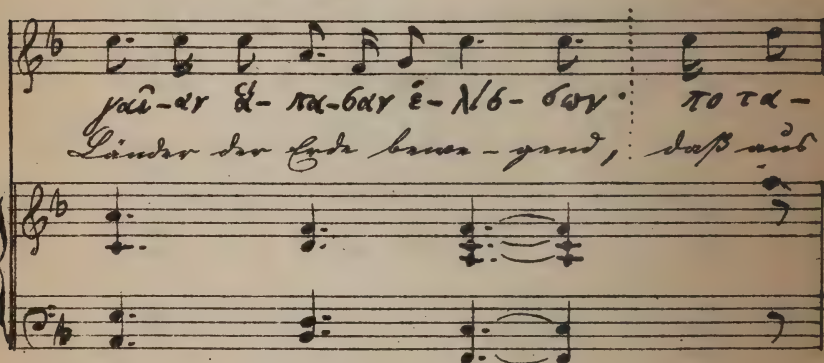 γαῖ-αν ἅ- πα-σαν ἑ-λίσ- σων· πο τα-
Länder der Erde bewe - gend, daß aus